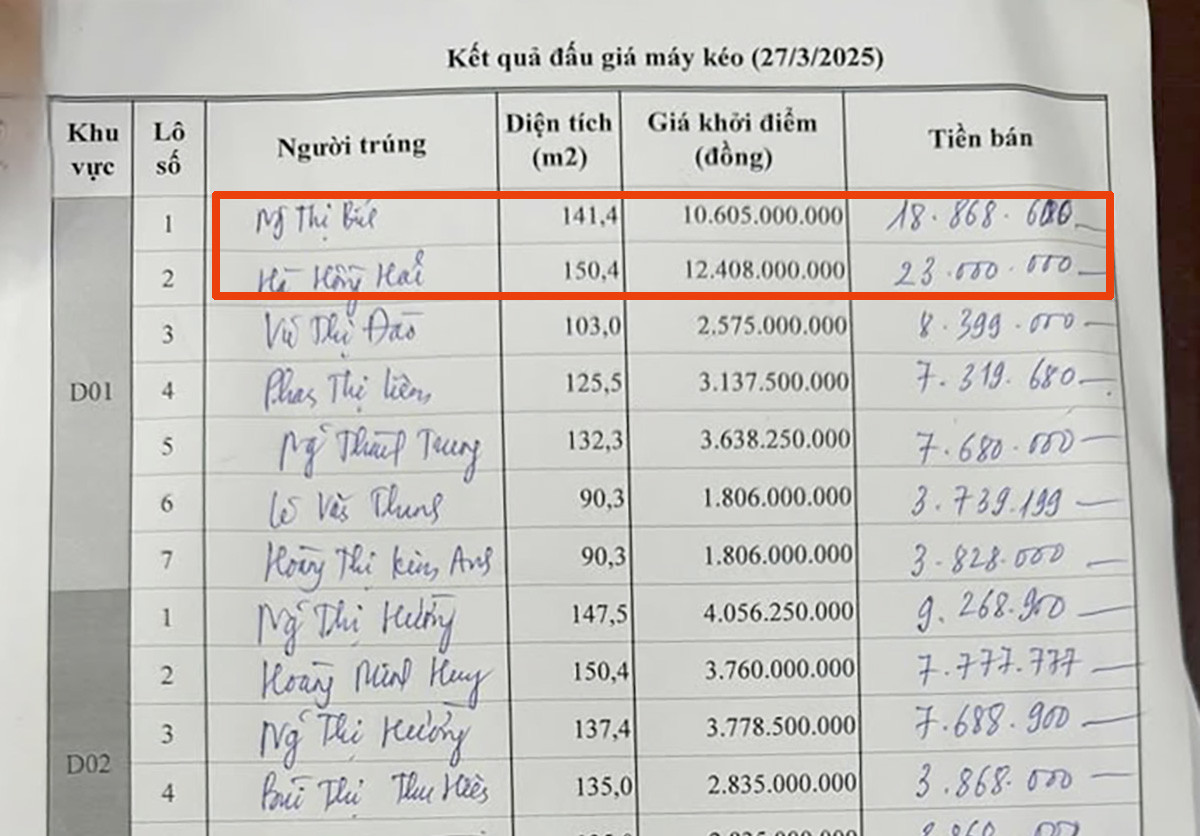 Kết quả đấu giá máy kéo (27/3/2025)
Khu vực Lô số Người trúng Diện tích (m2) Giá khởi điểm (đồng) Tiền bán
1 Ng Thị Bích 141,4 10.605.000.000 18.868.600
2 Hà Hồng Hải 150,4 12.408.000.000 23.000.000
3 Vũ Thị Đào 103,0 2.575.000.000 8.399.000
D01 4 Phan Thị Liên 125,5 3.137.500.000 7.319.680
5 Ng Thành Trung 132,3 3.638.250.000 7.680.000
6 Lê Văn Thung 90,3 1.806.000.000 3.739.199
7 Hoàng Thị Kim Anh 90,3 1.806.000.000 3.828.000
1 Ng Thị Hường 147,5 4.056.250.000 9.268.900
2 Hoàng Minh Huy 150,4 3.760.000.000 7.777.777
3 Ng Thị Hường 137,4 3.778.500.000 7.688.900
D02 4 Bùi Thị Thu Hiền 135,0 2.835.000.000 3.868.000